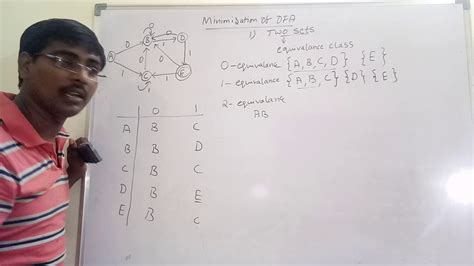 Minimisation of DFA
1) TWO sets
equivalance class
0-equivalane {A,B,C,D} {E}
1-equivalane {A,B,C} {D} {E}
2-equivalane
AB
0 1
A B C
B B D
C B C
D B E
E B C
A
B
C
D
E
0
1
0
0
1
0
1
0
1
1